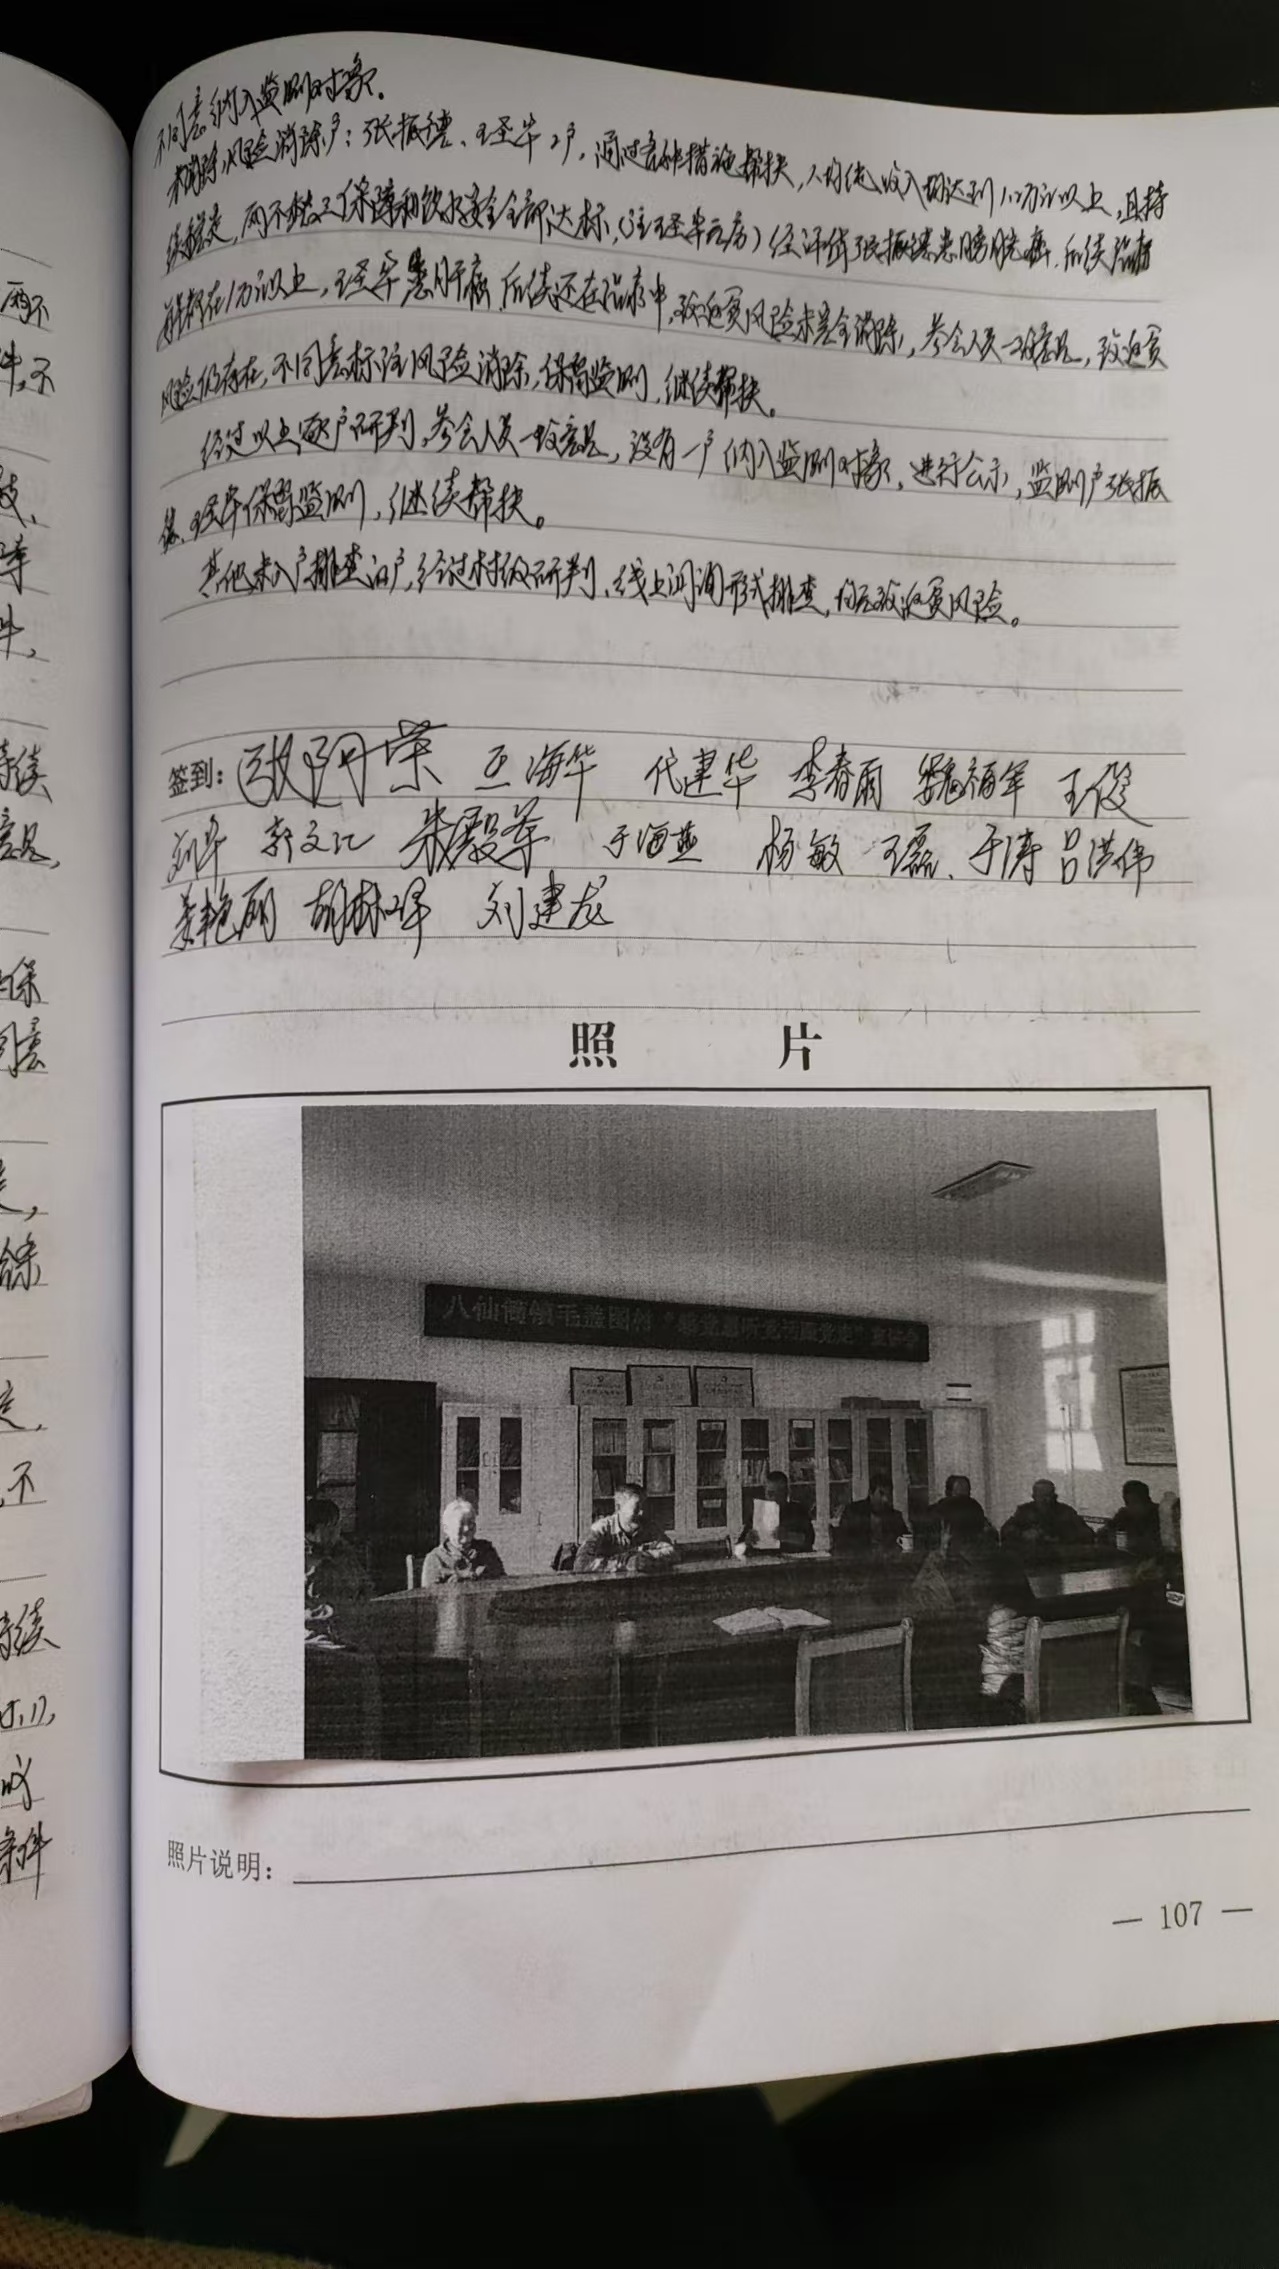 不同意纳入监测对象。
未消除风险消除户：张振德、王圣华2户，通过各种措施帮扶，人均纯收入均达到1.2万元以上，且持
续稳定，两不愁三保障和饮水安全全部达标，（注王圣华无房）经评估张振德患膀胱癌，后续治病
每年都在1万元以上，王圣华患肝癌，后续还在治疗中，致返贫风险未完全消除，参会人员一致意见，致返贫
风险仍存在，不同意标注风险消除，保留监测，继续帮扶。
经过以上逐户研判，参会人员一致意见，没有一户纳入监测对象，进行公示，监测户张振
德、王圣华保留监测，继续帮扶。
其他未入户排查的户，经过村级研判、线上问询形式排查，均无致返贫风险。
签到：欧阳荣 王海华 代建华 李春雨 魏福军 王俊
刘华 郭文江 朱殿军 于海燕 杨敏 王磊、于涛 吕洪伟
姜艳丽 胡林泽 刘建龙
照 片
八仙筒镇毛盖图村“感党恩听党话跟党走”宣讲会
照片说明：
— 107 —
两不
件，不
持续
意见，
保
同意
不
持续
条件